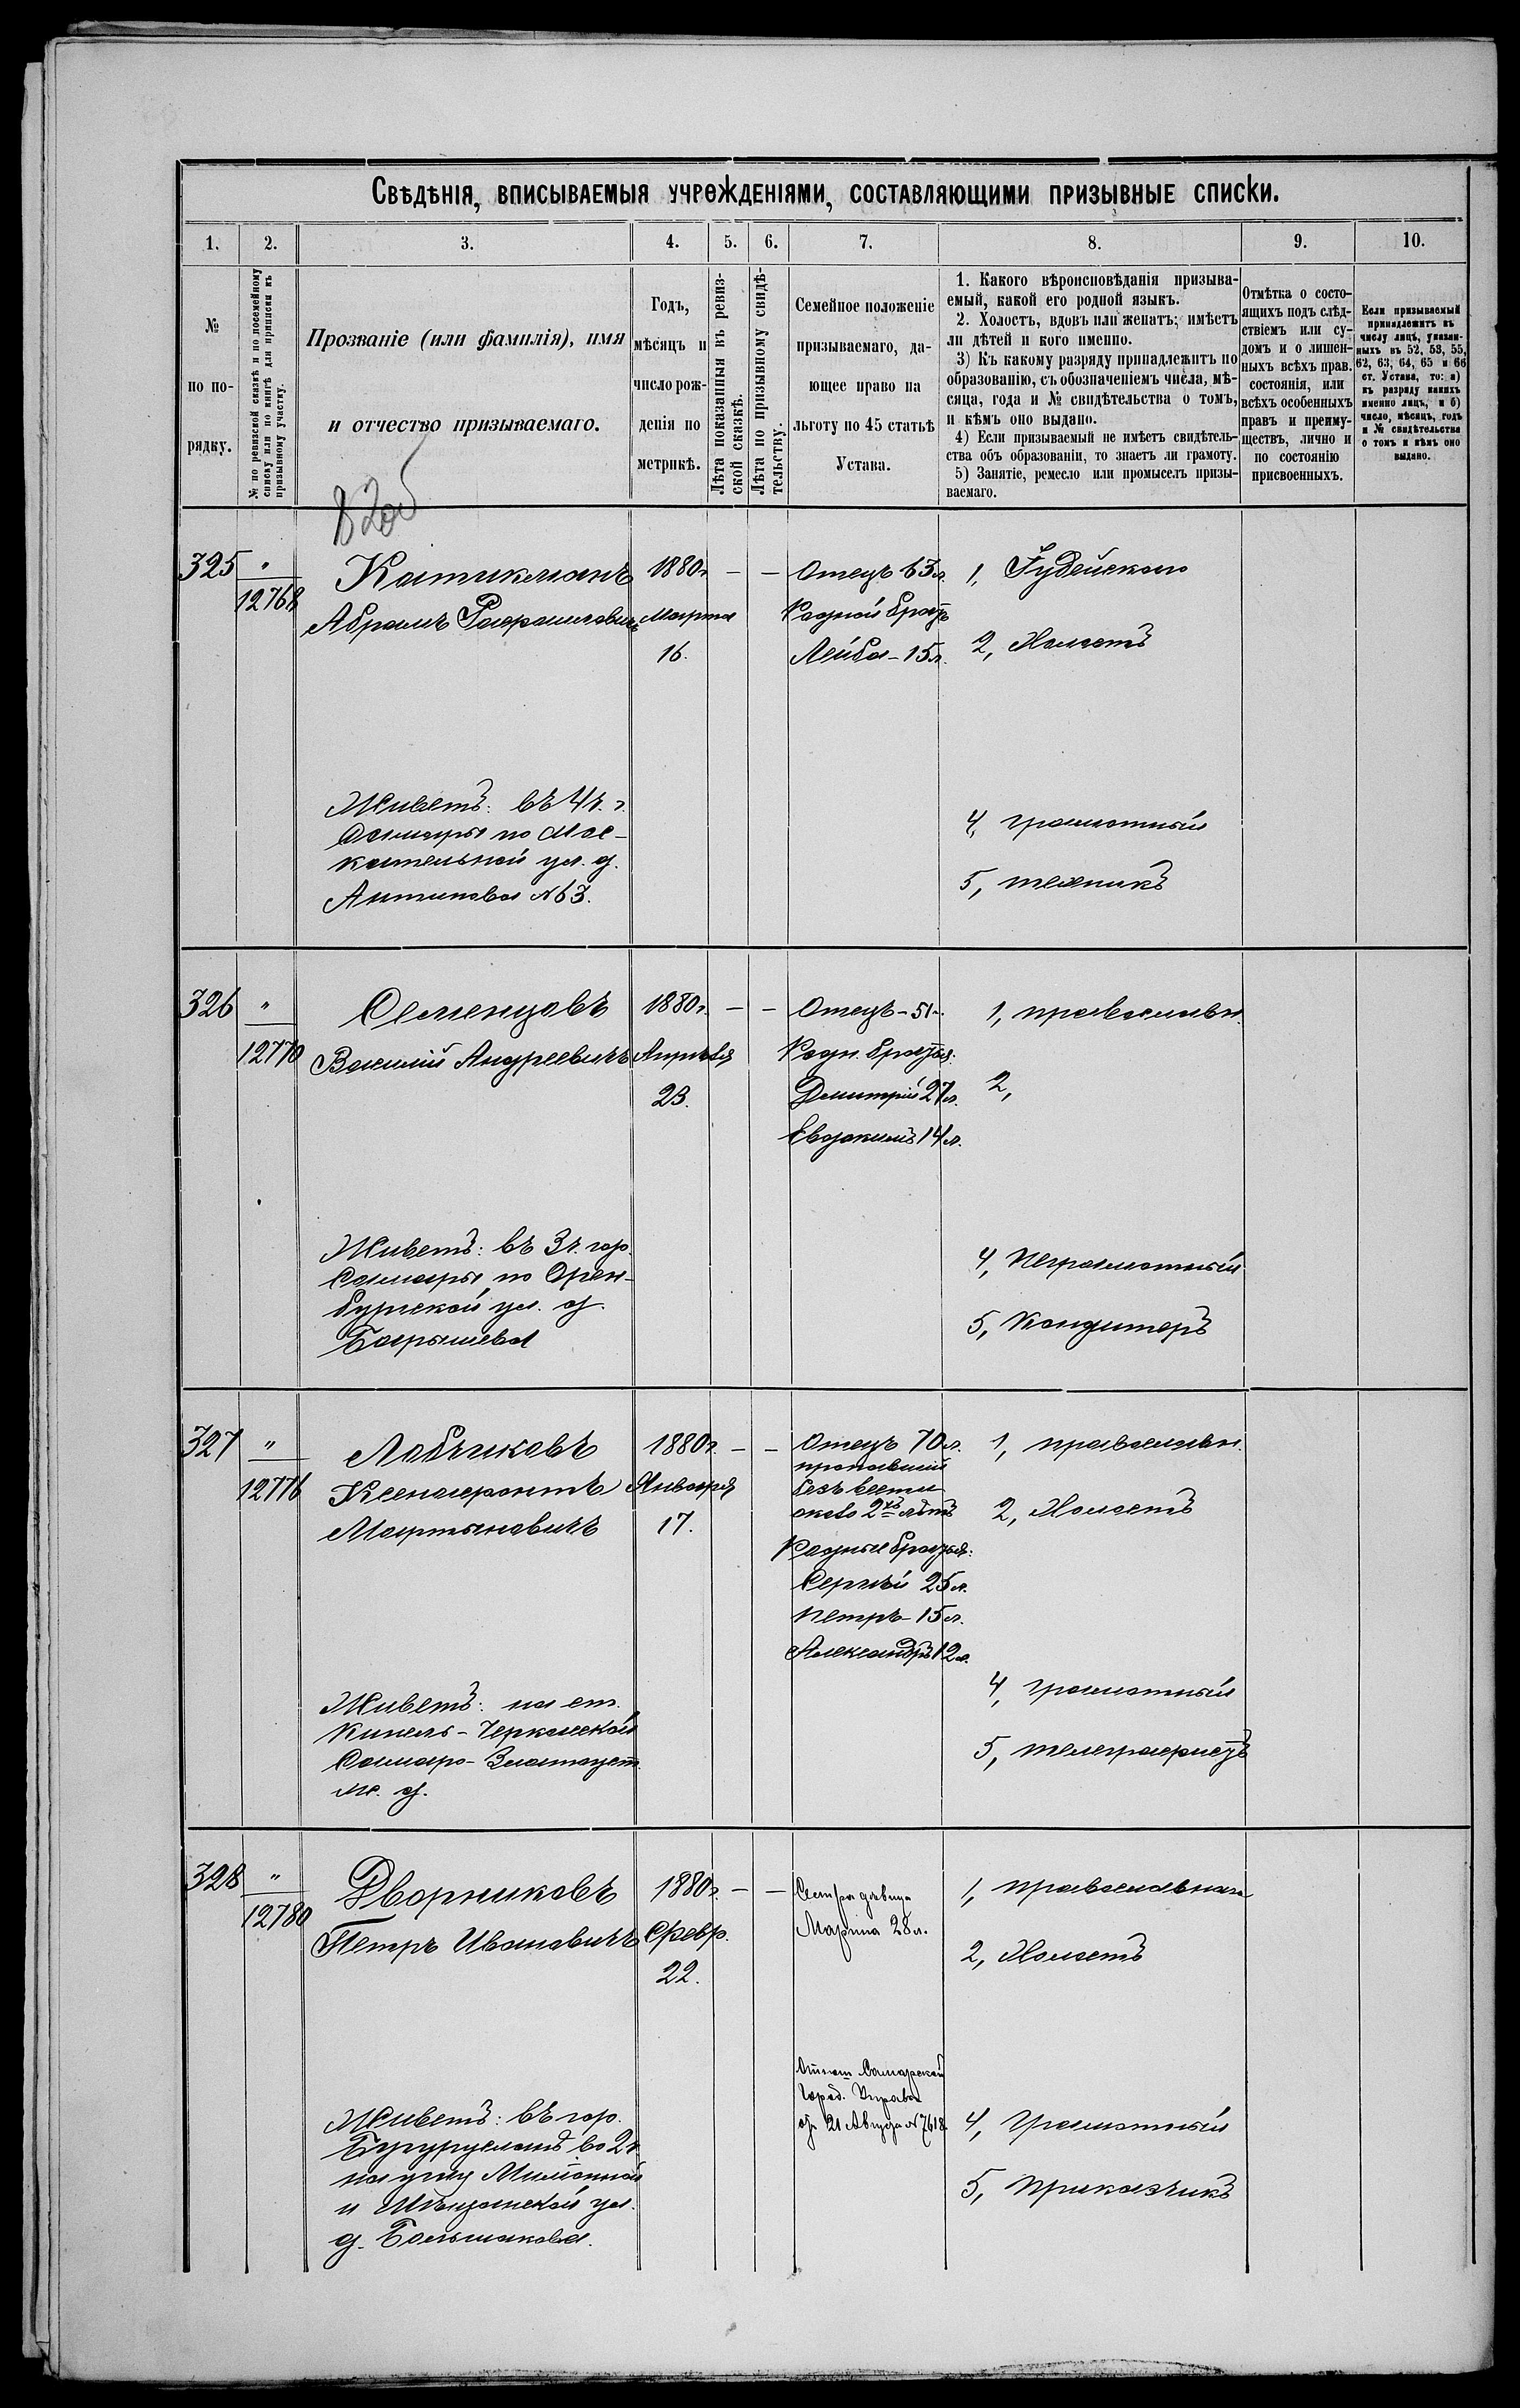 Свѣдѣнія, вписываемыя учрежденіями, составляющими призывные списки.
1. 2. 3. 4. 5. 6. 7. 8. 9. 10.
№ по порядку.
№ по ревизской сказкѣ и по посемейному
списку или по книгѣ для приписки къ
призывному участку.
Прозваніе (или фамилія), имя
и отчество призываемаго.
Годъ,
мѣсяцъ и
число рож-
денія по
метрикѣ.
Лѣта показанныя въ ревиз-
ской сказкѣ.
Лѣта по призывному свидѣ-
тельству.
Семейное положеніе
призываемаго, да-
ющее право на
льготу по 45 статьѣ
Устава.
1. Какого вѣроисповѣданія призыва-
емый, какой его родной языкъ.
2. Холостъ, вдовъ или женатъ; имѣетъ
ли дѣтей и кого именно.
3) Къ какому разряду принадлежитъ по
образованію, съ обозначеніемъ числа, мѣ-
сяца, года и № свидѣтельства о томъ,
и кѣмъ оно выдано.
4) Если призываемый не имѣетъ свидѣтель-
ства объ образованіи, то знаетъ ли грамоту.
5) Занятіе, ремесло или промыселъ призы-
ваемаго.
Отмѣтка о состо-
ящихъ подъ слѣд-
ствіемъ или су-
домъ и о лишен-
ныхъ всѣхъ прав.
состоянія, или
всѣхъ особенныхъ
правъ и преиму-
ществъ, лично и
по состоянію
присвоенныхъ.
Если призываемый
принадлежитъ къ
числу лицъ, указан-
ныхъ въ 52, 53, 55,
62, 63, 64, 65 и 66
ст. Устава, то: а)
къ разряду какихъ
именно лицъ, и б)
число, мѣсяцъ, годъ
и № свидѣтельства
о томъ и кѣмъ оно
выдано.
325 "
12768
Катикманъ
Абрамъ Рафаиловичъ
1880г.
Марта
16.
— —
Отецъ 63л.
Родной братъ
Лейба - 15л.
1, Іудейскаго
2, Холостъ
Живетъ: въ 4ч. г.
Самары по Мос-
кательной ул. д.
Антипова №63.
4, грамотный
5, техникъ
326 "
12770
Семенцовъ
Василій Андреевичъ
1880г.
Апрѣля
23.
— —
Отецъ - 51л.
Родн. братья:
Дмитрій 27л.
Евдокимъ 14л.
1, православн.
2,
Живетъ: въ 3ч. гор.
Самары по Орен-
бургской ул. д.
Барышева
4, Неграмотный
5, Кондитеръ
327 "
12776
Лобчиковъ
Ксенофонтъ
Мартыновичъ
1880г.
Января
17.
— —
Отецъ 70л.
пропавшій
безъ вести
около 2хъ лѣтъ
Родные братья:
Сергѣй 25л.
Петръ - 15л.
Александръ 12л.
1, православн.
2, Холостъ
Живетъ: на ст.
Кинель-Черкасской
Самаро-Златоуст.
ж. д.
4, грамотный
5, телеграфистъ
328 "
12780
Дворниковъ
Петръ Ивановичъ
1880г.
Февр.
22.
— —
Сестра дѣвица
Марина 28л.
1, православная
2, Холостъ
Отнош. Самарской
Город. Управы
отъ 21 Августа №7618.
Живетъ: въ гор.
Бугурусланѣ во 2ч.
на углу Милліонной
и Мѣщанской ул.
д. Большакова.
4, Грамотный
5, Приказчикъ